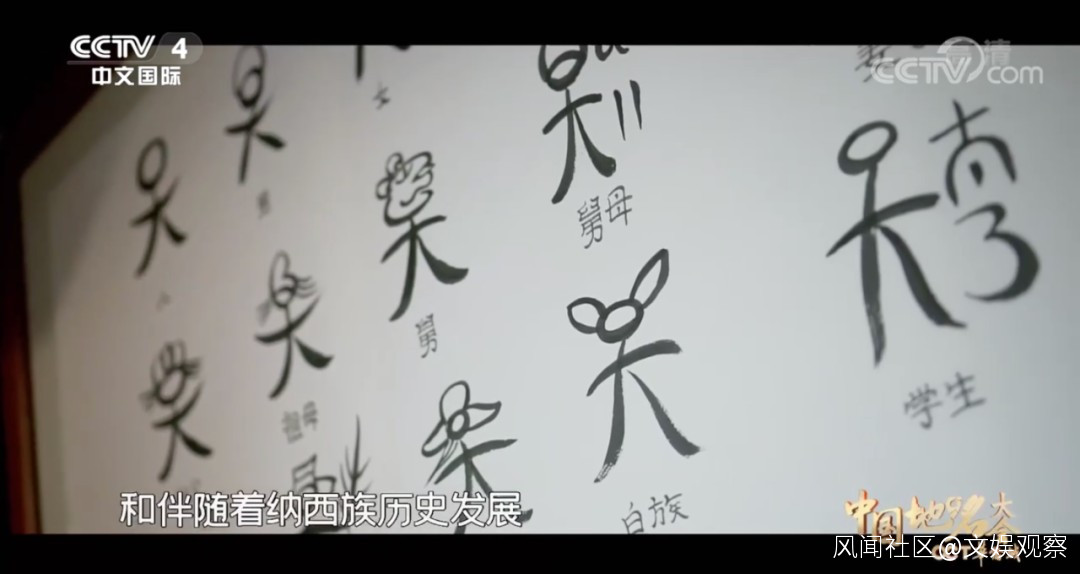 CCTV 4
中文国际
CCTV.com
高清
女
人
男
祖母
舅
舅母
白族
学生
和伴随着纳西族历史发展
中国地名大会
风闻社区@文娱观察